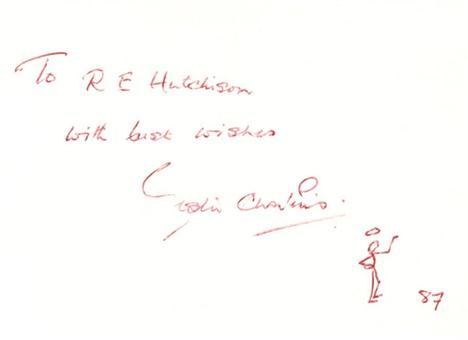 To R E Hutchison
with best wishes
Leslie Charteris.
87